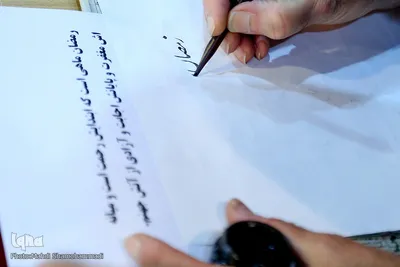 رمضان ماهی است که ابتدایش رحمت است و میانه
اش مغفرت و پایانش اجابت و آزادی از آتش جهنم.
رمضا
iqna